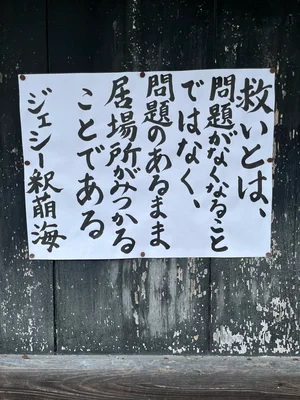 救いとは、
問題がなくなること
ではなく、
問題のあるまま
居場所がみつかる
ことである
ジェシー釈萌海